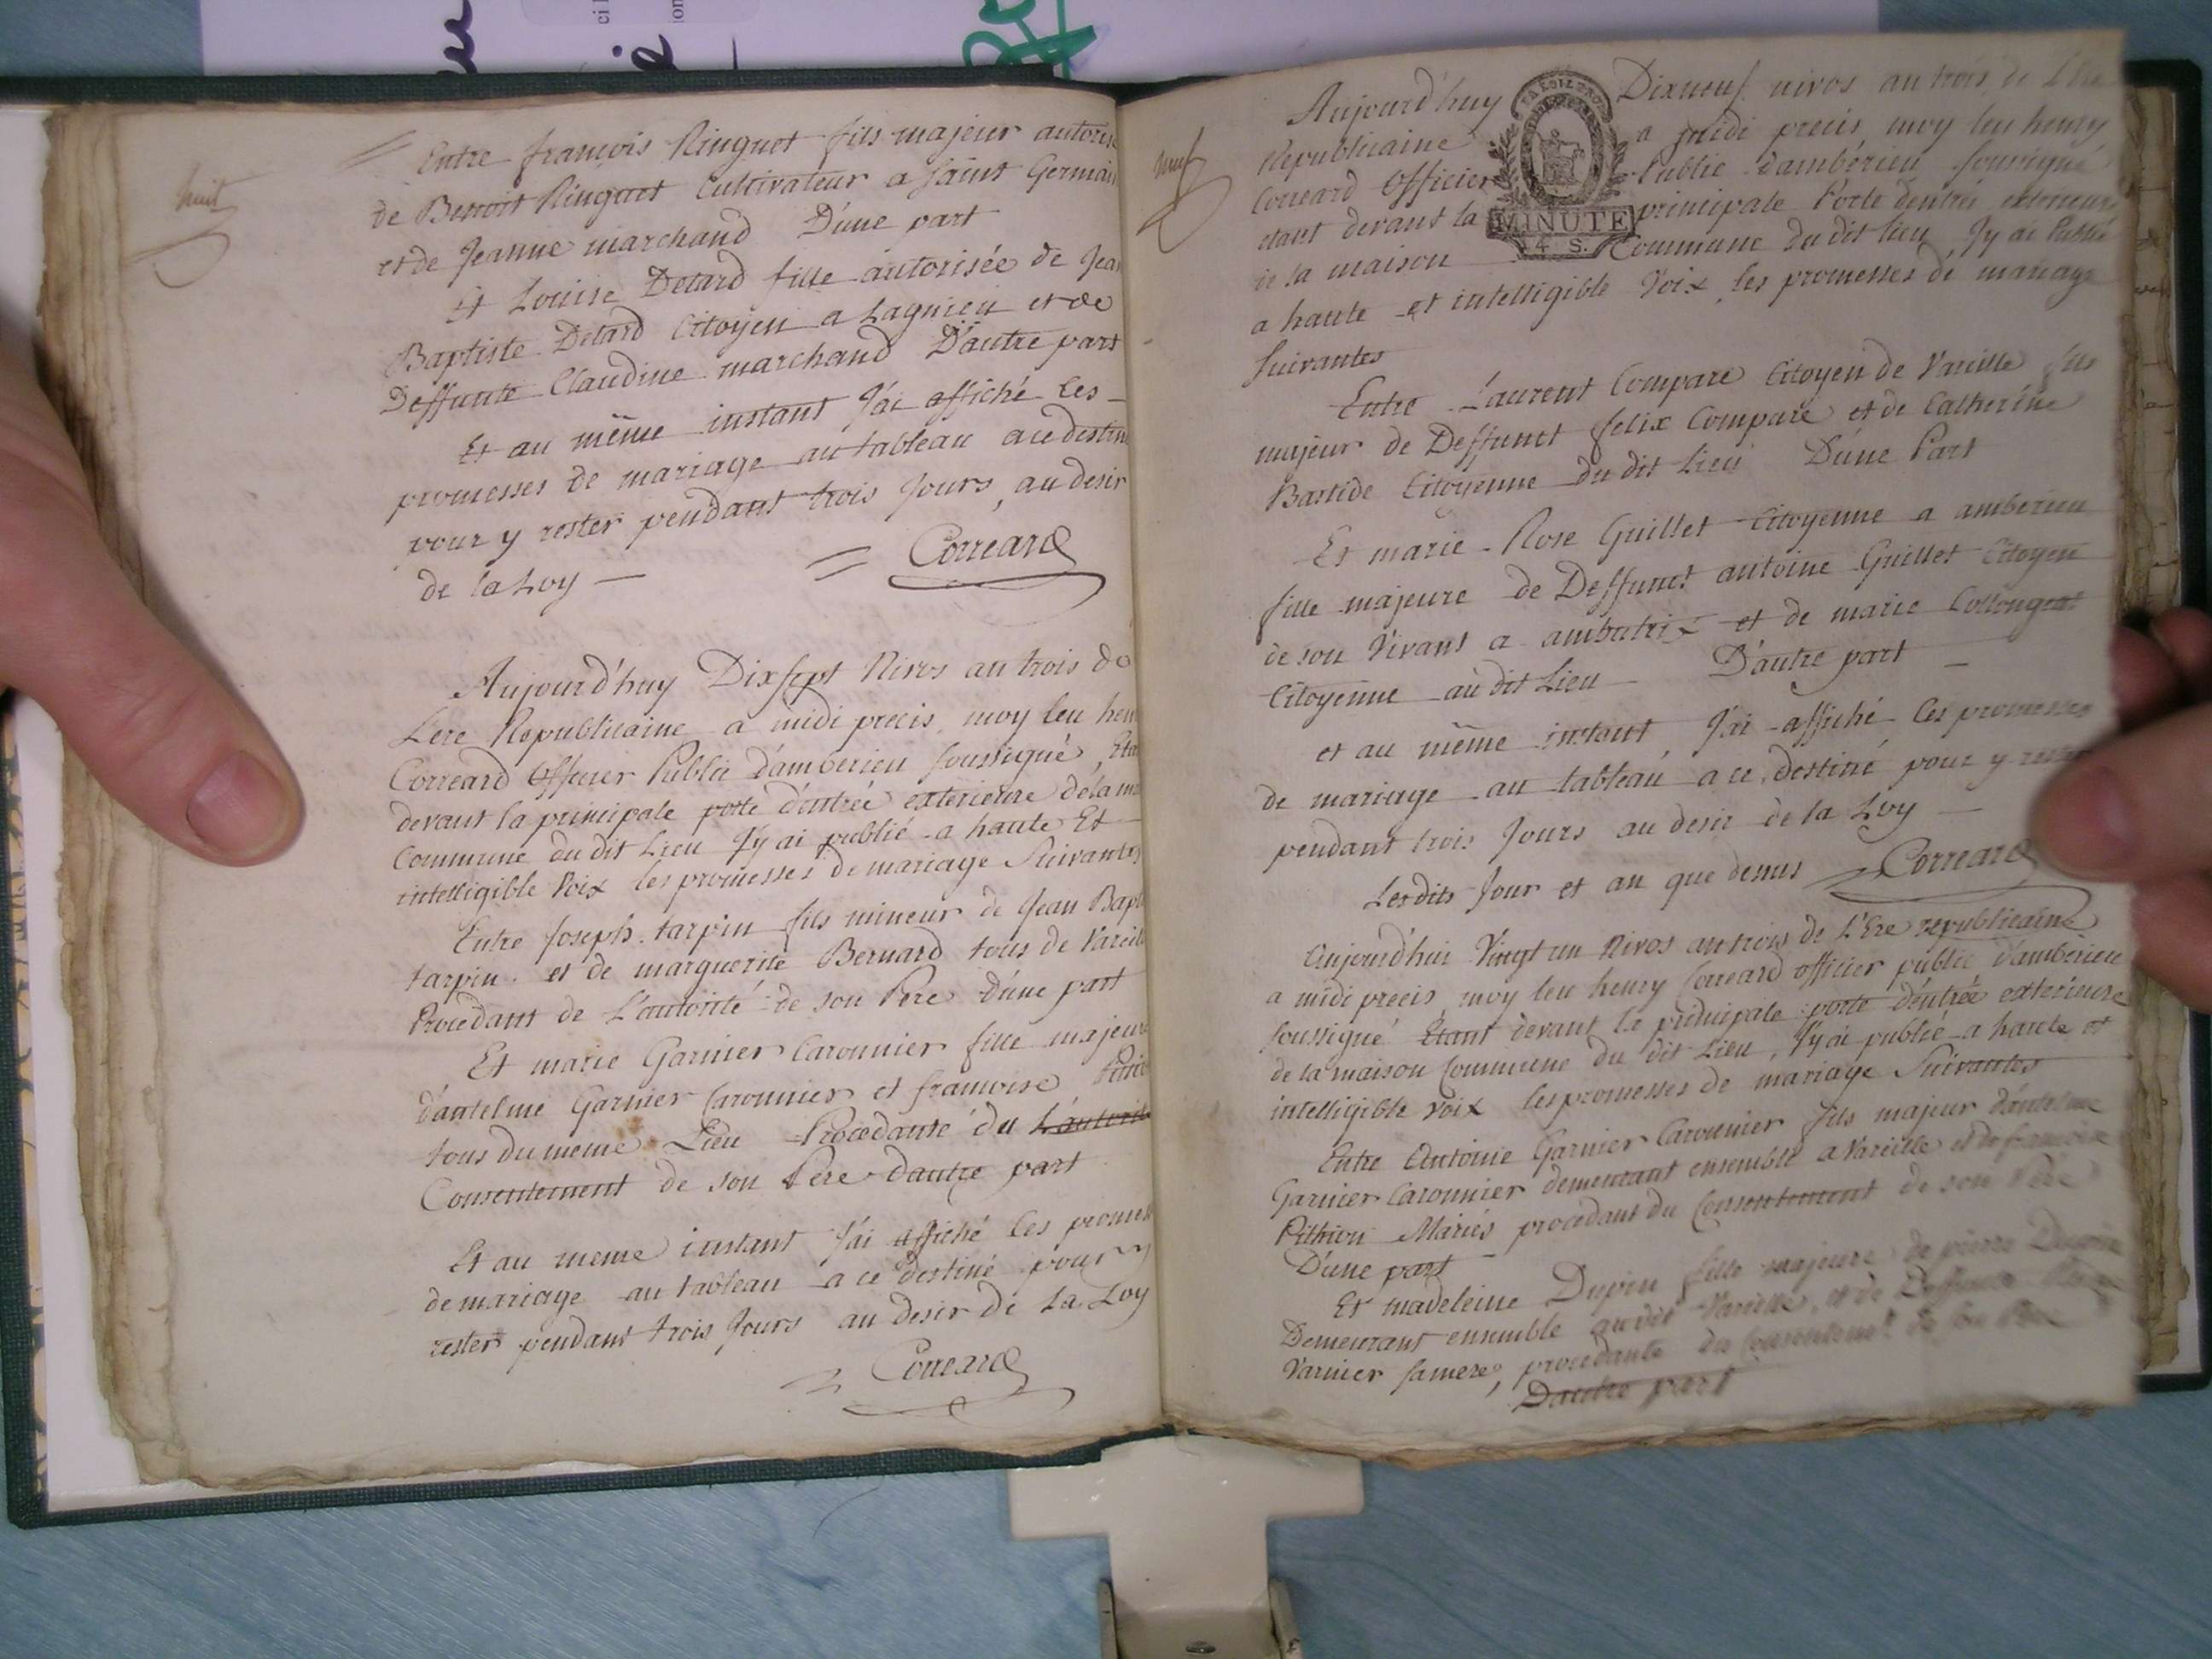 huit
Entre francois Ringuet fils majeur autoris
de Benoit Ringuet Cultivateur a saint Germain
et de Jeanne marchand D'une part
Et Louise Detard fille autorisée de Jean
Baptiste Detard Citoyen a Lagnieu et de
Deffunte Claudine marchand D'autre part
Et au même instant J'ai affiché les
promesses de mariage au tableau a ce destin
pour y rester pendant trois Jours, au desir
de la Loy — Correard
Aujourd'huy Dixsept Nivos an trois de
L'ere Republicaine a midi precis, moy leu hen
Correard Officier Public d'amberieu soussigné, Eta
devant la principale porte d'entrée exterieure de la m
Commune du dit Lieu J'y ai publié a haute Et
intelligible Voix les promesses de mariage Suivantes
Entre Joseph tarpin fils mineur de Jean Bapt
tarpin et de marguerite Bernard tous de Vareil
Procedant de L'autorité de son Pere D'une part
Et marie Garnier Caronnier fille majeure
d'antelme Garnier Caronnier et francoise
tous du meme Lieu Procedante du L'autorit
Consentement de son Pere d'autre part
Et au meme instant J'ai affiché les promess
de mariage au tableau a ce destiné pour y
rester pendant trois Jours au desir de La Loy
Correard
neuf
Aujourd'huy Dixneuf nivos an trois de L'Ere
Republicaine a midi precis, moy leu henry
Correard Officier Public d'amberieu soussigné
etant devant la principale Porte d'entrée exterieure
de la maison Commune du dit lieu J'y ai Publié
a haute et intelligible Voix les promesses de mariage
Suivantes
MINUTE
4 S.
Entre Laurent Compare Citoyen de Vareille fils
majeur de Deffunct felix Compare et de Catherine
Bastide Citoyenne du dit Lieu D'une Part
Et marie Rose Guillet Citoyenne a amberieu
fille majeure de Deffunct antoine Guillet Citoyen
de son Vivant a ambutrix et de marie Collongeat
Citoyenne au dit Lieu D'autre part —
et au même instant, J'ai affiché les promesses
de mariage au tableau a ce destiné pour y rester
pendant trois Jours au desir de la Loy —
Lesdits Jour et an que dessus Correard
Aujourd'hui Vingt un Nivos an trois de L'Ere republicaine
a midi precis, moy leu henry Correard officier public d'amberieu
soussigné Etant devant la principale porte d'entrée exterieure
de la maison Commune du dit Lieu, J'y ai publié a haute et
intelligible Voix les promesses de mariage Suivantes
Entre Antoine Garnier Caronnier fils majeur d'antelme
Garnier Caronnier demeurant ensemble a Vareille et de francoise
Pithion Mariés procedant du Consentement de son Pere
D'une part
Et madeleine Dupin fille majeure de pierre Dupin
Demeurant ensemble au dit Vareille, et de Deffunte
Varnier sa mere, procedante du Consentemt de son Pere
D'autre part